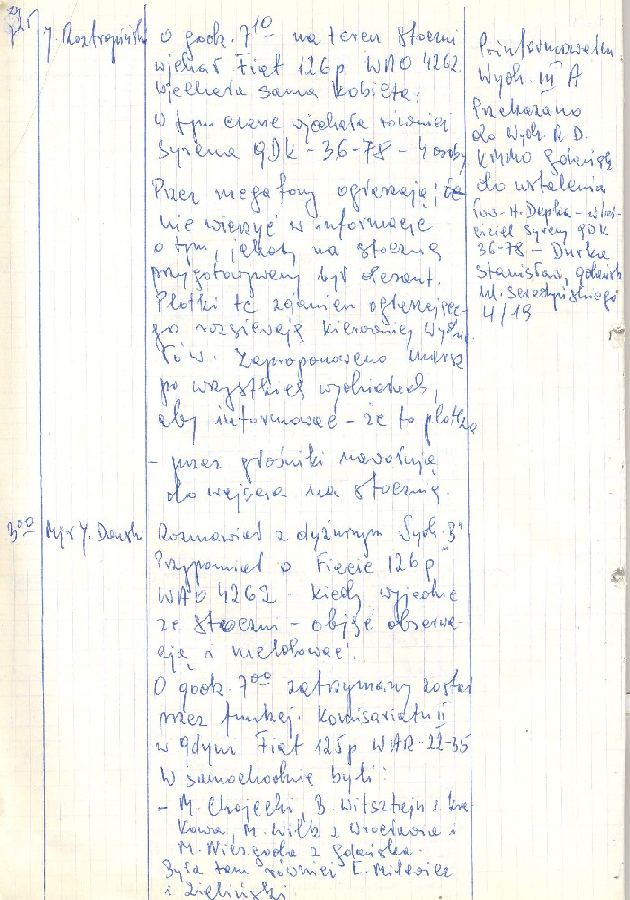 7²⁵
J. Roztropiński
O godz. 7¹⁰ na teren stoczni
wjechał Fiat 126p WAO 4262.
wjechała sama kobieta.
W tym czasie wjechała również
Syrena GDK-36-78 - 4 osoby
Przez megafony ogłaszają: że
nie wierzyć w informacje
o tym, jakoby na stocznię
przygotowywany był desant.
Plotki te zdaniem ogłaszające-
go rozsiewają kierownicy Wydzia-
łów. Zaproponowano marsz
po wszystkich wydziałach,
aby informować - że to plotka
- przez głośniki nawołują
do wejścia na stocznię.
Poinformowałem
Wydz. III A
Przekazano
do Wydz. R.D.
KWMO Gdańsk
do ustalenia
tow. H. Depka - właś-
ciciel Syreny GDK
36-78 - Durka
Stanisław, Gdańsk
ul.
4/19
8⁰⁰
Mjr J.
Rozmawiał z dyżurnym Wydz. "B"
Przypomniał o Fiacie 126p
WAO 4262 - kiedy wyjedzie
ze stoczni - objąć obserwa-
cją i meldować.
O godz. 7⁰⁰ zatrzymany został
przez funkcj. Komisariatu II
w Gdyni Fiat 125p WAR-22-35
W samochodzie byli:
- M. Chojecki, B. Witsztejn z Kra-
kowa, M. Wilk z Wrocławia i
M. Niezgoda z Gdańska.
Była tam również E. Milewicz
i Zieliński.